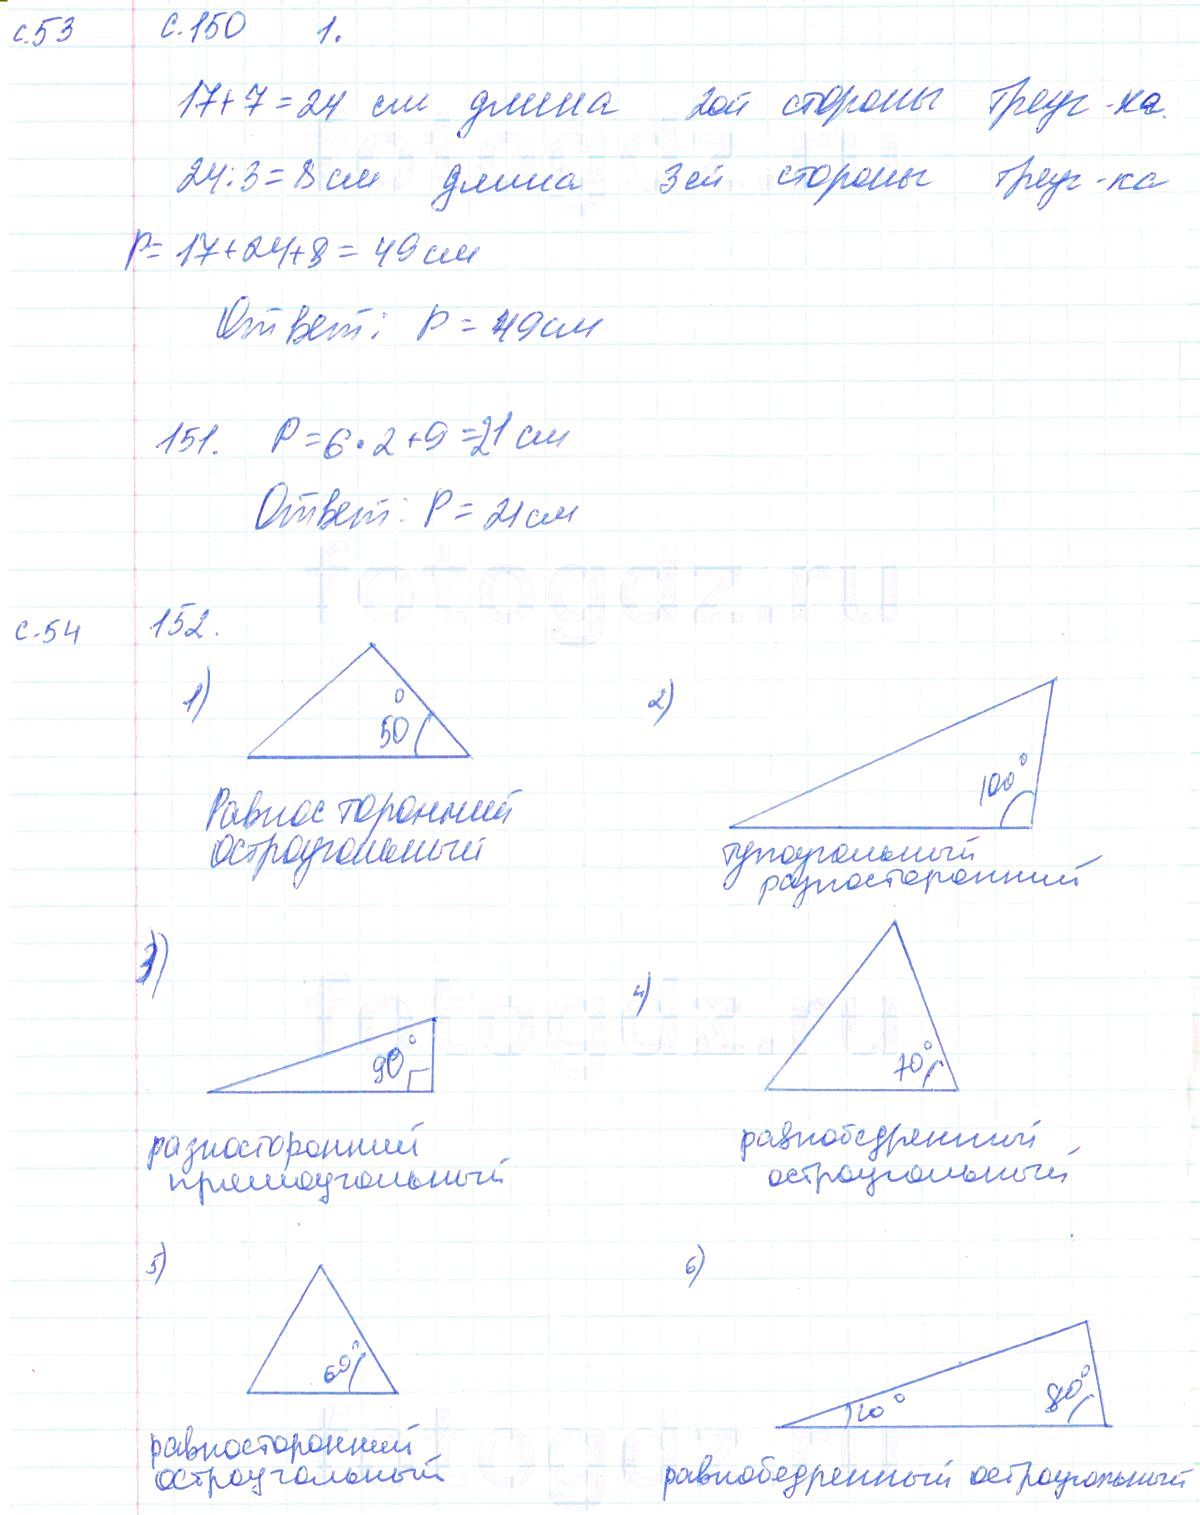 с.53 с.150 1.
17+7=24 см длина 2ой стороны треуг-ка.
24:3=8см длина 3ей стороны треуг-ка
P= 17+24+8= 49см
Ответ: P = 49см
151. P=6·2+9=21см
Ответ: P = 21см
fotogdz.ru
с.54 152.
1) 2)
50°
100°
Равносторонний
остроугольный
тупоугольный
разносторонний
3) 4)
fotogdz.ru
90°
70°
разносторонний
прямоугольный
равнобедренный
остроугольный
5) 6)
60°
80°
равносторонний
остроугольный
равнобедренный остроугольный